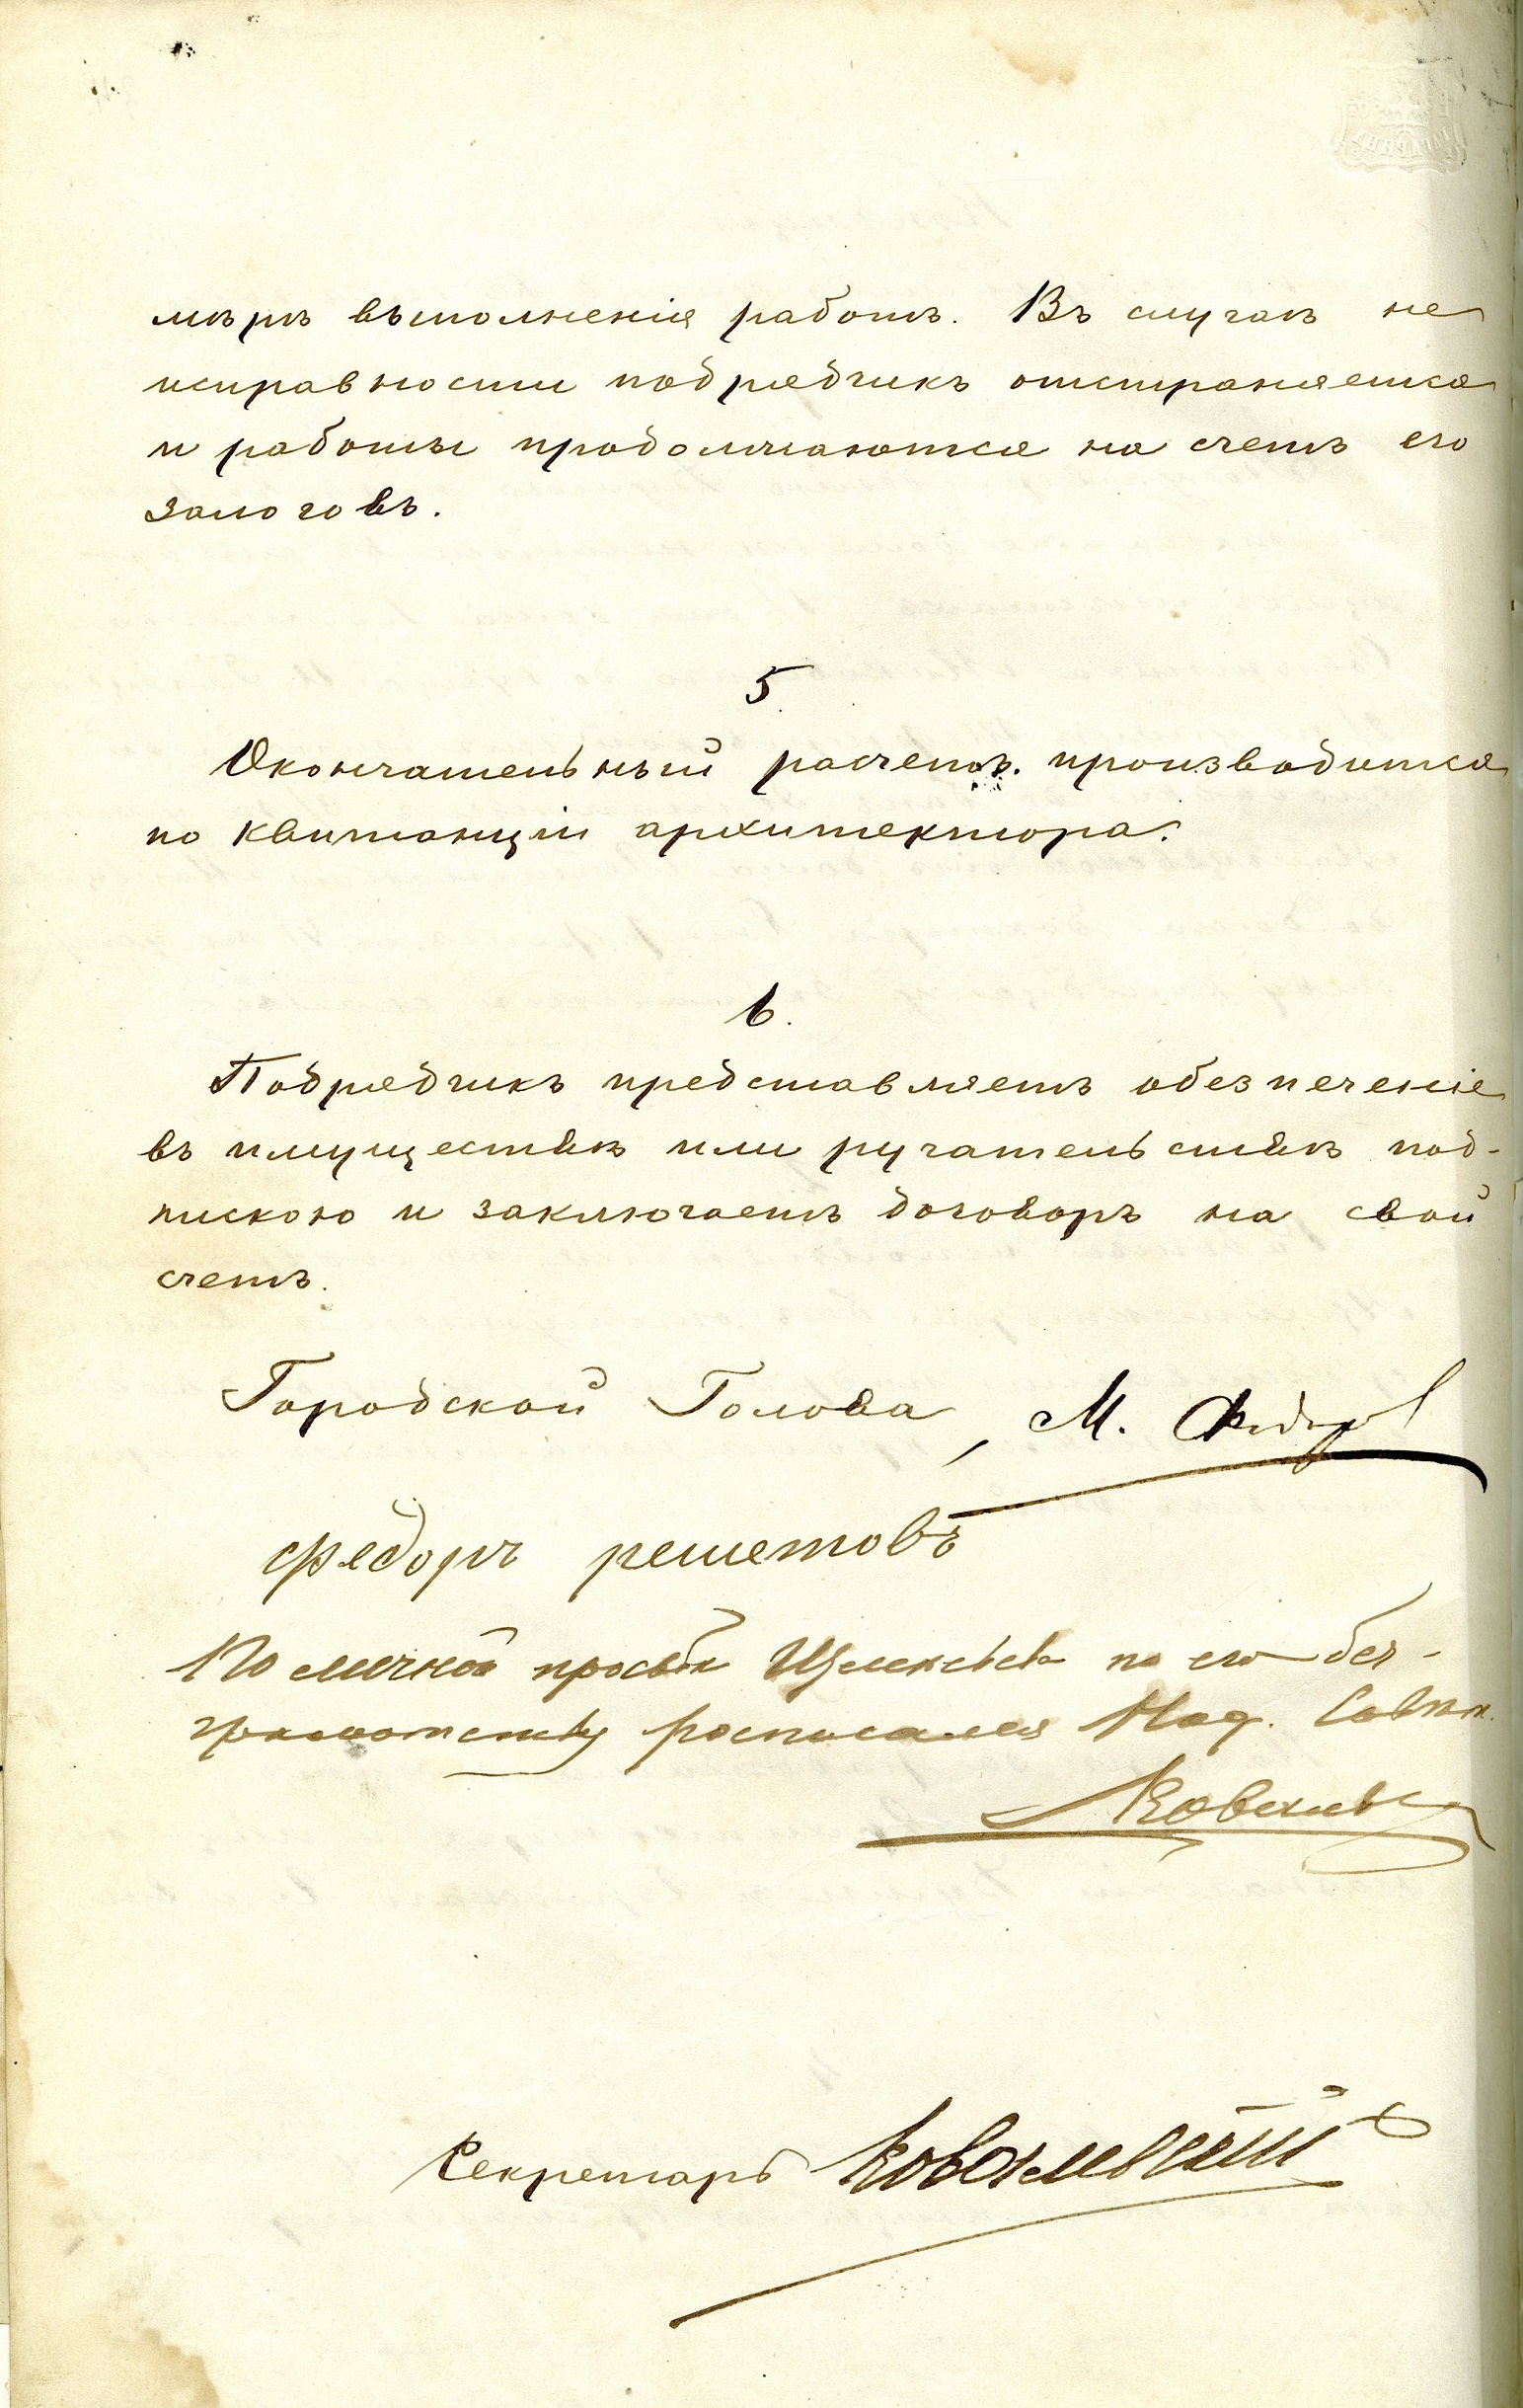 мѣрѣ выполненія работъ. Въ случаѣ не
исправности подрядчикъ отстраняется
и работы продолжаются на счетъ его
залоговъ.
5.
Окончательный расчетъ. производится
по квитанціи архитектора.
6.
Подрядчикъ представляетъ обезпеченіе
въ имуществѣ или ручательствѣ под-
пискою и заключаетъ договоръ на свой
счетъ.
Городской Голова, М.
федоръ решетовъ
По личной просьбѣ по его без-
грамотству росписался Над. Совѣтн.
Секретарь Ковалевскій